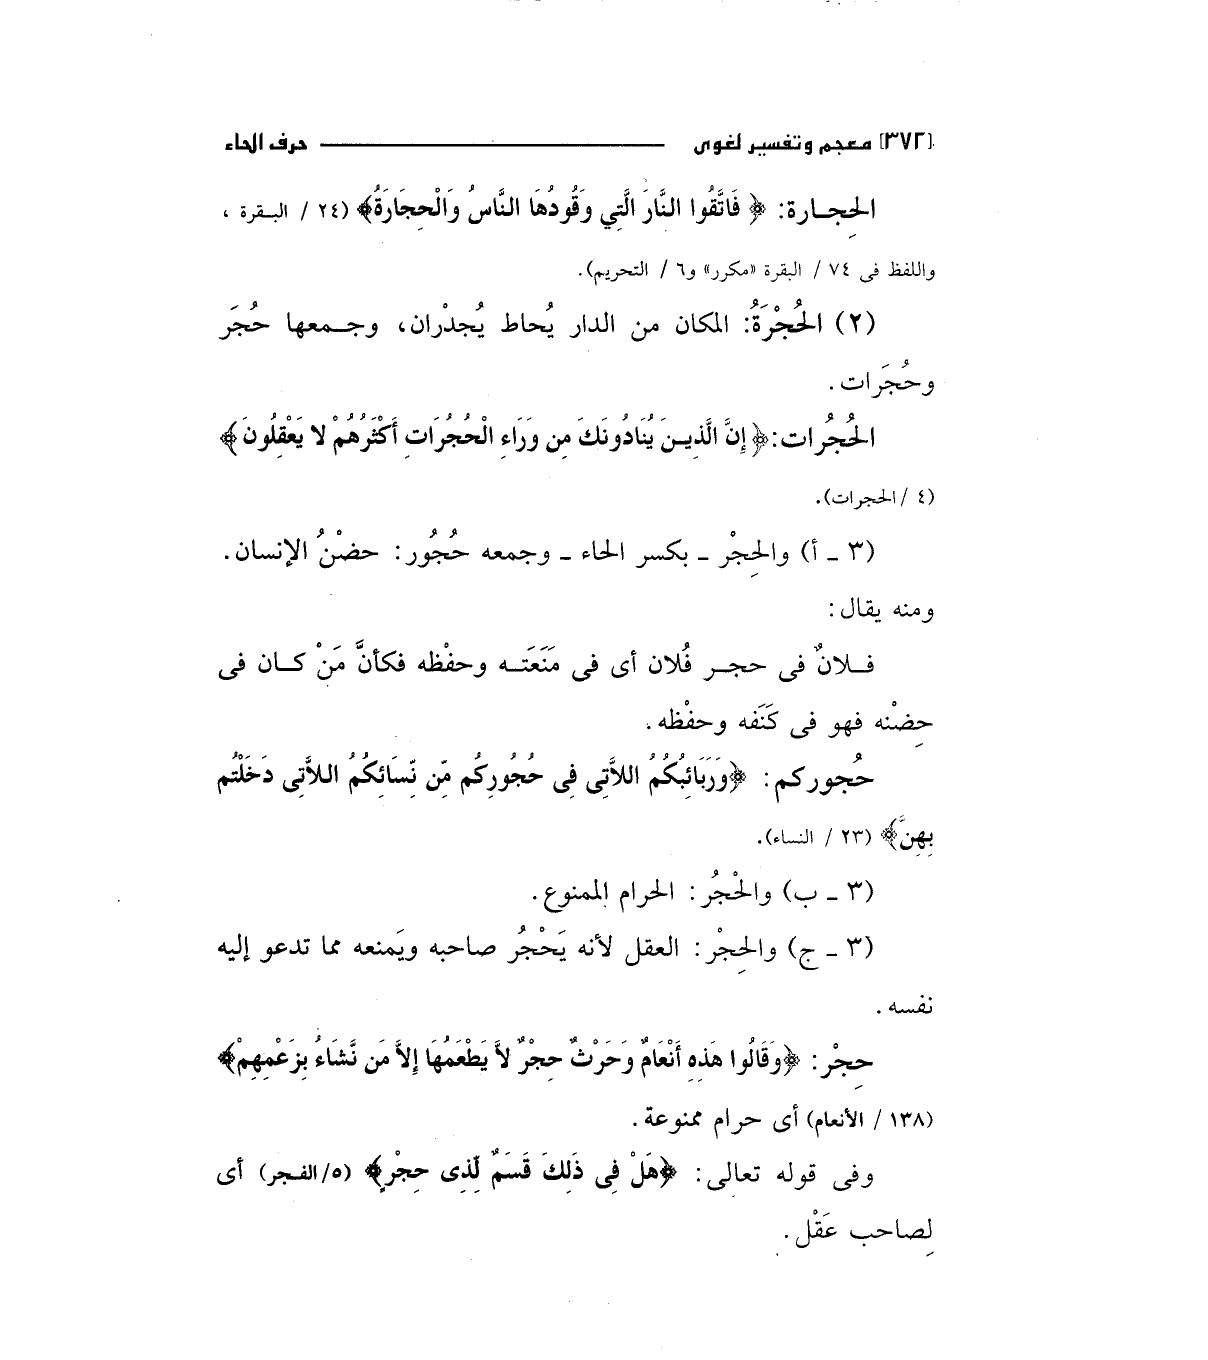 [٣٧٢] معجم وتفسير لغوى حرف الحاء
الحِجارة: ﴿ فَاتَّقُوا النَّارَ الَّتِي وَقُودُهَا النَّاسُ وَالْحِجَارَةُ﴾ (٢٤ / البقرة ،
واللفظ فى ٧٤ / البقرة «مكرر» و٦ / التحريم).
(٢) الحُجْرَةُ: المكان من الدار يُحاط يُجدْران، وجمعها حُجَر
وحُجَرات.
الحُجُرات: ﴿ إِنَّ الَّذِينَ يُنَادُونَكَ مِن وَرَاءِ الْحُجُرَاتِ أَكْثَرُهُمْ لا يَعْقِلُونَ ﴾
(٤ /الحجرات).
(٣ ـ أ) والحِجْر ـ بكسر الحاء ـ وجمعه حُجُور: حضْنُ الإنسان.
ومنه يقال:
فلانٌ فى حجر فُلان أى فى مَنَعَته وحفْظه فكأنَّ مَنْ كان فى
حِضْنه فهو فى كَنَفه وحفْظه.
حُجوركم: ﴿وَرَبَائِبُكُمُ اللاَّتِى فِى حُجُورِكُم مِّن نِّسَائِكُمُ اللاَّتِى دَخَلْتُم
بِهِنَّ﴾ (٢٣ / النساء).
(٣ ـ ب) والحْجُر: الحرام الممنوع.
(٣ ـ ج) والحِجْر: العقل لأنه يَحْجُر صاحبه ويَمنعه مما تدعو إليه
نفسه.
حِجْر: ﴿وَقَالُوا هَذِهِ أَنْعَامٌ وَحَرْثٌ حِجْرٌ لاَّ يَطْعَمُهَا إِلاَّ مَن نَّشَاءُ بِزَعْمِهِمْ﴾
(١٣٨ / الأنعام) أى حرام ممنوعة.
وفى قوله تعالى: ﴿هَلْ فِى ذَلِكَ قَسَمٌ لِّذِى حِجْرٍ﴾ (٥/الفجر) أى
لِصاحب عَقْل.